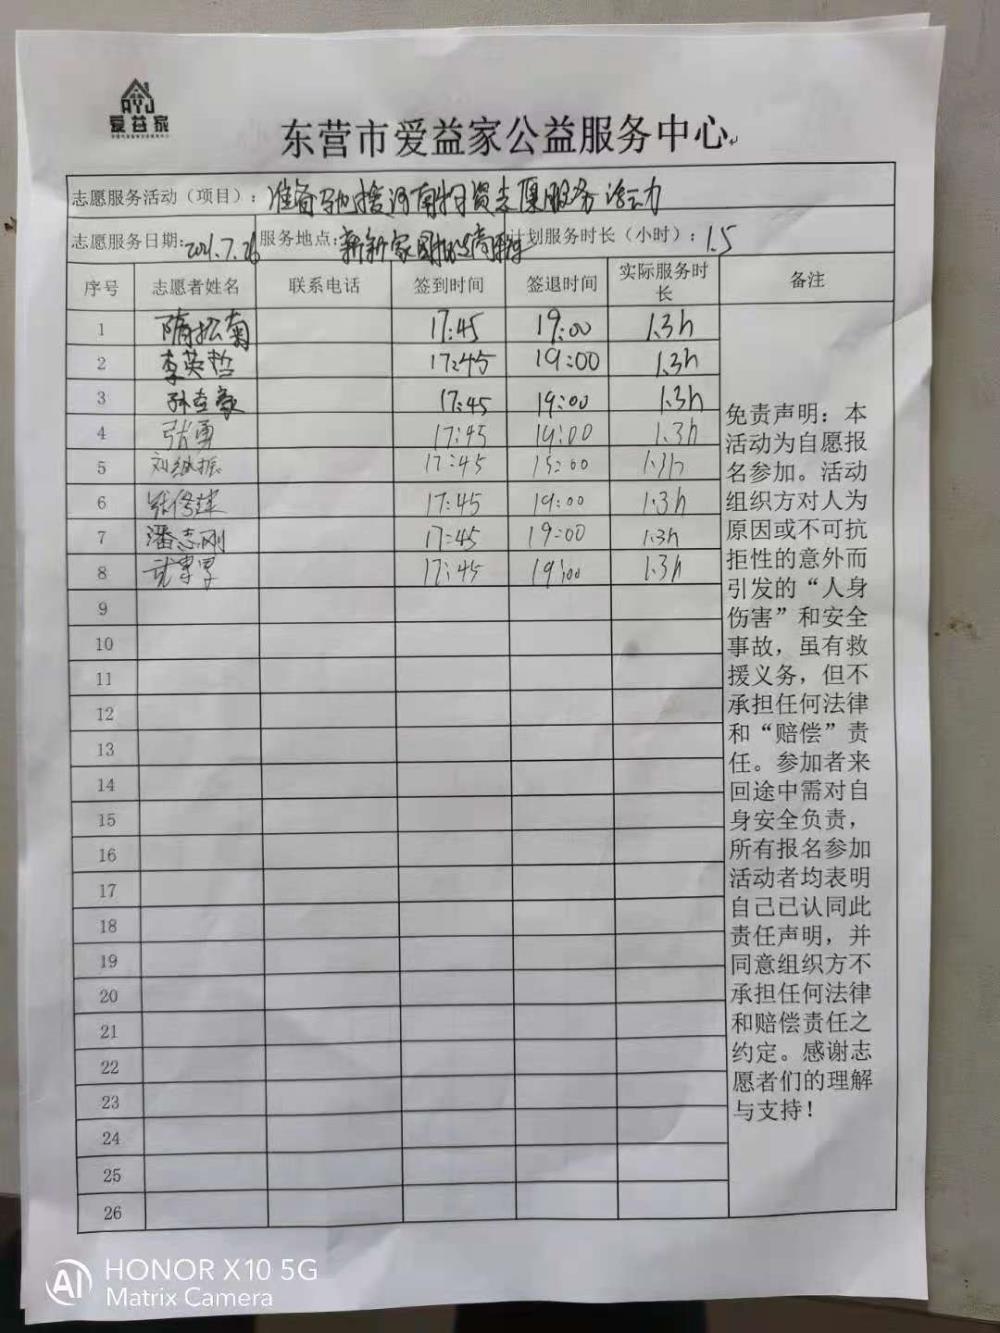 AYJ
爱益家
东营市爱益家公益服务中心
志愿服务活动（项目）：准备驰援河南物资志愿服务活动
志愿服务日期：2021.7.26 服务地点：新新家园 计划服务时长（小时）：1.5
序号 志愿者姓名 联系电话 签到时间 签退时间 实际服务时长 备注
1 隋松菊 17:45 19:00 1.3h
2 李英哲 17:45 19:00 1.3h
3 17:45 19:00 1.3h
4 张勇 17:45 19:00 1.3h
5 刘继振 17:45 19:00 1.3h
6 17:45 19:00 1.3h
7 潘志刚 17:45 19:00 1.3h
8 17:45 19:00 1.3h
9
10
11
12
13
14
15
16
17
18
19
20
21
22
23
24
25
26
免责声明：本
活动为自愿报
名参加。活动
组织方对人为
原因或不可抗
拒性的意外而
引发的“人身
伤害”和安全
事故，虽有救
援义务，但不
承担任何法律
和“赔偿”责
任。参加者来
回途中需对自
身安全负责，
所有报名参加
活动者均表明
自己已认同此
责任声明，并
同意组织方不
承担任何法律
和赔偿责任之
约定。感谢志
愿者们的理解
与支持！
AI HONOR X10 5G
Matrix Camera